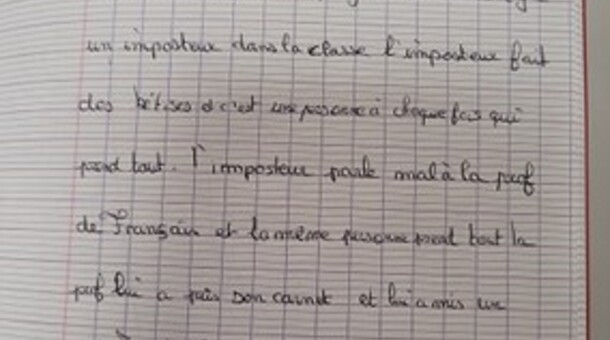 un imposteur dans la classe l'imposteur fait
des bêtises et c'est une personne à chaque fois qui
prend tout. l'imposteur parle mal à la prof
de Français et la même personne prend tout la
prof lui a pris son carnet et lui a mis un